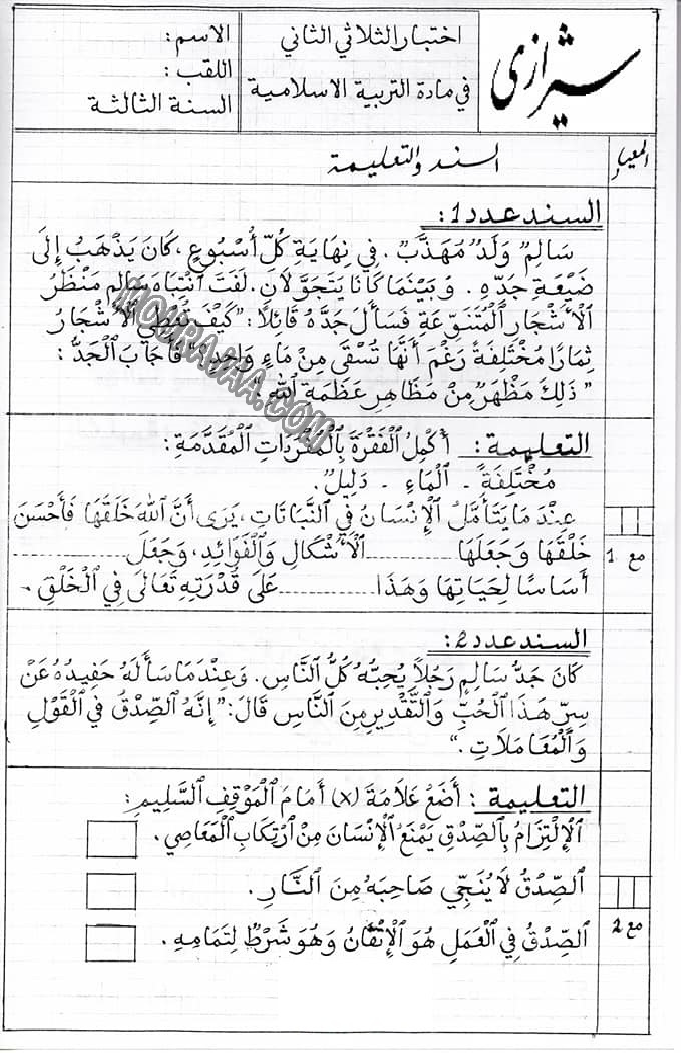 شيرازي
اختبار الثلاثي الثاني
في مادة التربية الاسلامية
الاسم:
اللقب:
السنة الثالثة
المعيار
السند والتعليمة
السند عدد 1:
سَالِمٌ وَلَدٌ مُهَذَّبٌ. فِي نِهَايَةِ كُلِّ أُسْبُوعٍ، كَانَ يَذْهَبُ إِلَى
ضَيْعَةِ جَدِّهِ. وَبَيْنَمَا كَانَا يَتَجَوَّلَانِ، لَفَتَ انْتِبَاهَ سَالِمٍ مَنْظَرُ
الْأَشْجَارِ الْمُتَنَوِّعَةِ فَسَأَلَ جَدَّهُ قَائِلًا: "كَيْفَ تُعْطِي الْأَشْجَارُ
ثِمَارًا مُخْتَلِفَةً رَغْمَ أَنَّهَا تُسْقَى مِنْ مَاءٍ وَاحِدٍ؟" فَأَجَابَ الْجَدُّ:
"ذَلِكَ مَظْهَرٌ مِنْ مَظَاهِرِ عَظَمَةِ اللهِ."
MOURAJAA.COM
التعليمة: أُكْمِلُ الْفَقْرَةَ بِالْمُفْرَدَاتِ الْمُقَدَّمَةِ:
مُخْتَلِفَةً - الْمَاءِ - دَلِيلٌ.
عِنْدَمَا يَتَأَمَّلُ الْإِنْسَانُ فِي النَّبَاتَاتِ، يَرَى أَنَّ اللهَ خَلَقَهَا فَأَحْسَنَ
خَلْقَهَا وَجَعَلَهَا .......... الْأَشْكَالِ وَالْفَوَائِدِ، وَجَعَلَ ..........
أَسَاسًا لِحَيَاتِهَا وَهَذَا .......... عَلَى قُدْرَتِهِ تَعَالَى فِي الْخَلْقِ.
مع 1
السند عدد 2:
كَانَ جَدُّ سَالِمٍ رَجُلًا يُحِبُّهُ كُلُّ النَّاسِ. وَعِنْدَمَا سَأَلَهُ حَفِيدُهُ عَنْ
سِرِّ هَذَا الْحُبِّ وَالتَّقْدِيرِ مِنَ النَّاسِ قَالَ: "إِنَّهُ الصِّدْقُ فِي الْقَوْلِ
وَالْمُعَامَلَاتِ."
التعليمة: أَضَعُ عَلَامَةَ (x) أَمَامَ الْمَوْقِفِ السَّلِيمِ:
الْإِلْتِزَامُ بِالصِّدْقِ يَمْنَعُ الْإِنْسَانَ مِنْ ارْتِكَابِ الْمَعَاصِي.
الصِّدْقُ لَا يُنَجِّي صَاحِبَهُ مِنَ النَّارِ.
الصِّدْقُ فِي الْعَمَلِ هُوَ الْإِتْقَانُ وَهُوَ شَرْطٌ لِتَمَامِهِ.
مع 2